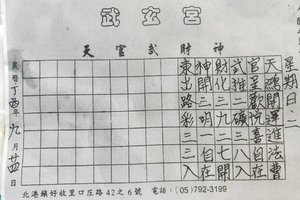 武玄宮
天官武財神
星期日·二
天鴻開進法曹
官呈歡悅喜自在
武推二礦三八入
財化三九二七開
神開三明一自在
東出路彩三二入
農曆丁酉年九月廿四日
北港鎮好收里口庄路42之6號 電話：(05)792-3199